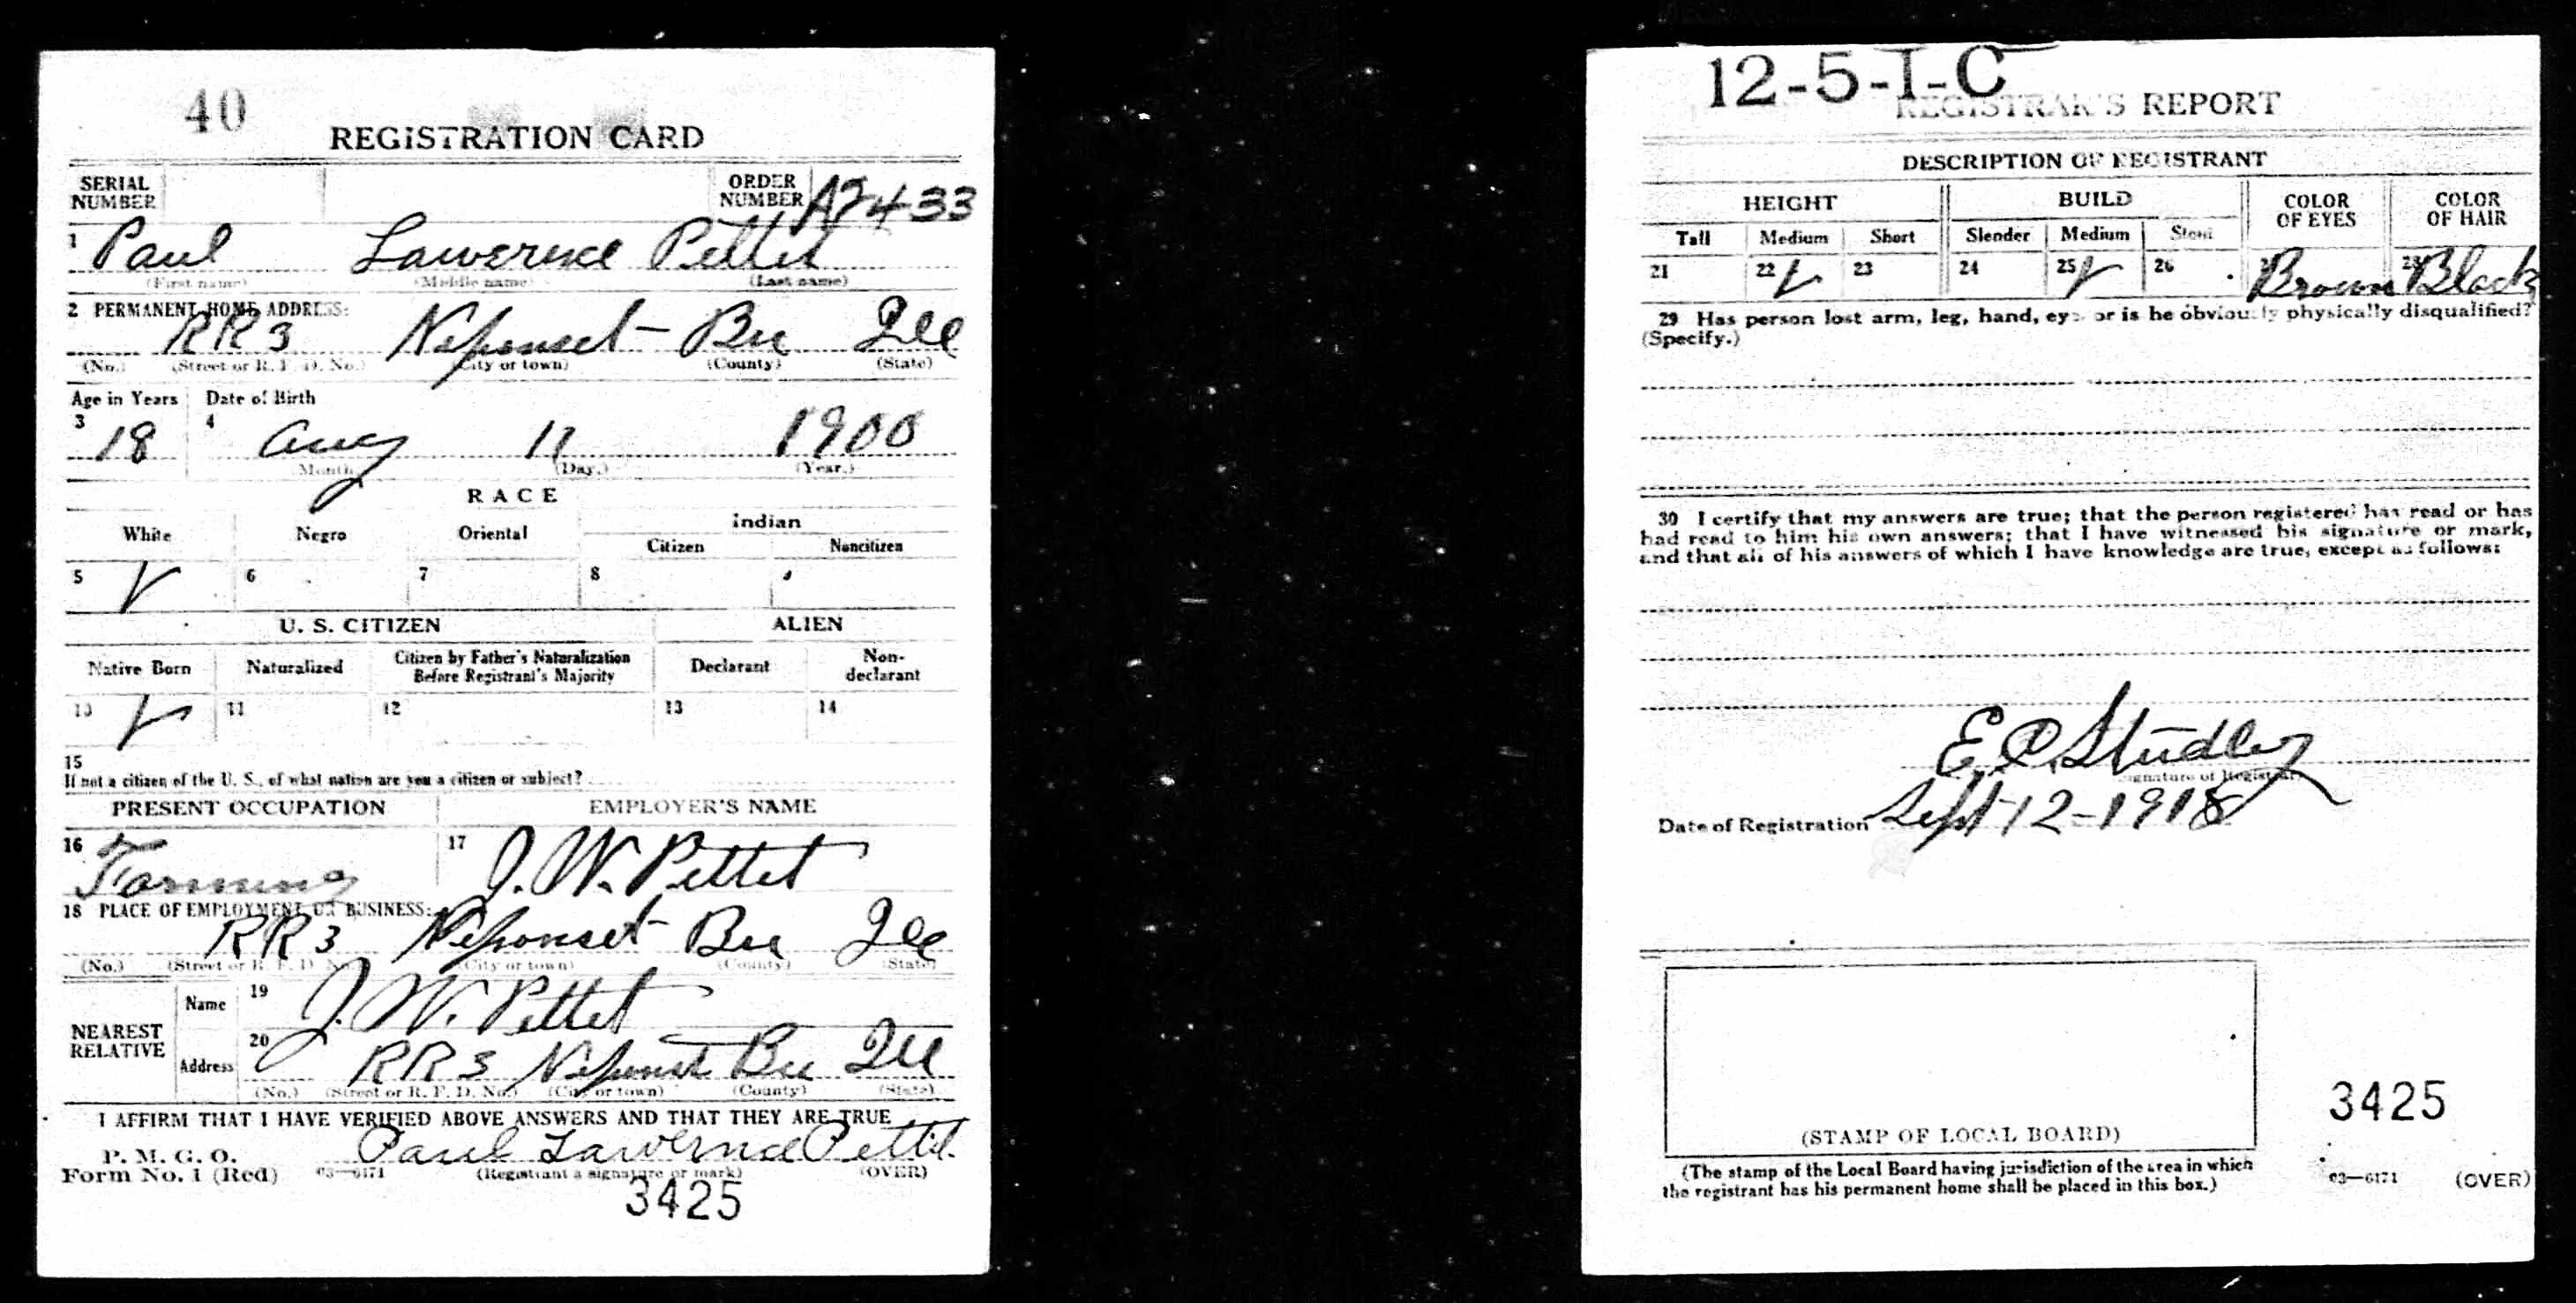 40
REGISTRATION CARD
SERIAL NUMBER ORDER NUMBER A2433
1 Paul Lawerence Pettet
(First name) (Middle name) (Last name)
2 PERMANENT HOME ADDRESS:
RR 3 Neponset Bu Ill
(No.) (Street or R. F. D. No.) (City or town) (County) (State)
Age in Years Date of Birth
3 18 4 Aug 11 1900
(Month) (Day.) (Year.)
RACE
White Negro Oriental Indian
Citizen Noncitizen
5 ✓ 6 7 8
U. S. CITIZEN ALIEN
Native Born Naturalized Citizen by Father's Naturalization Before Registrant's Majority Declarant Non-declarant
10 ✓ 11 12 13 14
15
If not a citizen of the U. S., of what nation are you a citizen or subject?
PRESENT OCCUPATION EMPLOYER'S NAME
16 Farming 17 J. W. Pettet
18 PLACE OF EMPLOYMENT OR BUSINESS:
RR 3 Neponset Bu Ill
(No.) (Street or R. F. D. No.) (City or town) (County) (State)
NEAREST RELATIVE
Name 19 J. W. Pettet
Address 20 RR 3 Neponset Bu Ill
(No.) (Street or R. F. D. No.) (City or town) (County) (State)
I AFFIRM THAT I HAVE VERIFIED ABOVE ANSWERS AND THAT THEY ARE TRUE
P. M. G. O.
Form No. 1 (Red) 03—6171 Paul Lawernce Pettet
(Registrant's signature or mark) (OVER)
3425
12-5-1-C
REGISTRAR'S REPORT
DESCRIPTION OF REGISTRANT
HEIGHT BUILD COLOR OF EYES COLOR OF HAIR
Tall Medium Short Slender Medium Stout
21 22 ✓ 23 24 25 ✓ 26 27 Brown 28 Black
29 Has person lost arm, leg, hand, eye, or is he obviously physically disqualified?
(Specify.)
30 I certify that my answers are true; that the person registered has read or has
had read to him his own answers; that I have witnessed his signature or mark,
and that all of his answers of which I have knowledge are true, except as follows:
Studley
(Signature of Registrar)
Date of Registration Sept 12-1918
(STAMP OF LOCAL BOARD)
(The stamp of the Local Board having jurisdiction of the area in which
the registrant has his permanent home shall be placed in this box.)
3425
03—6171 (OVER)